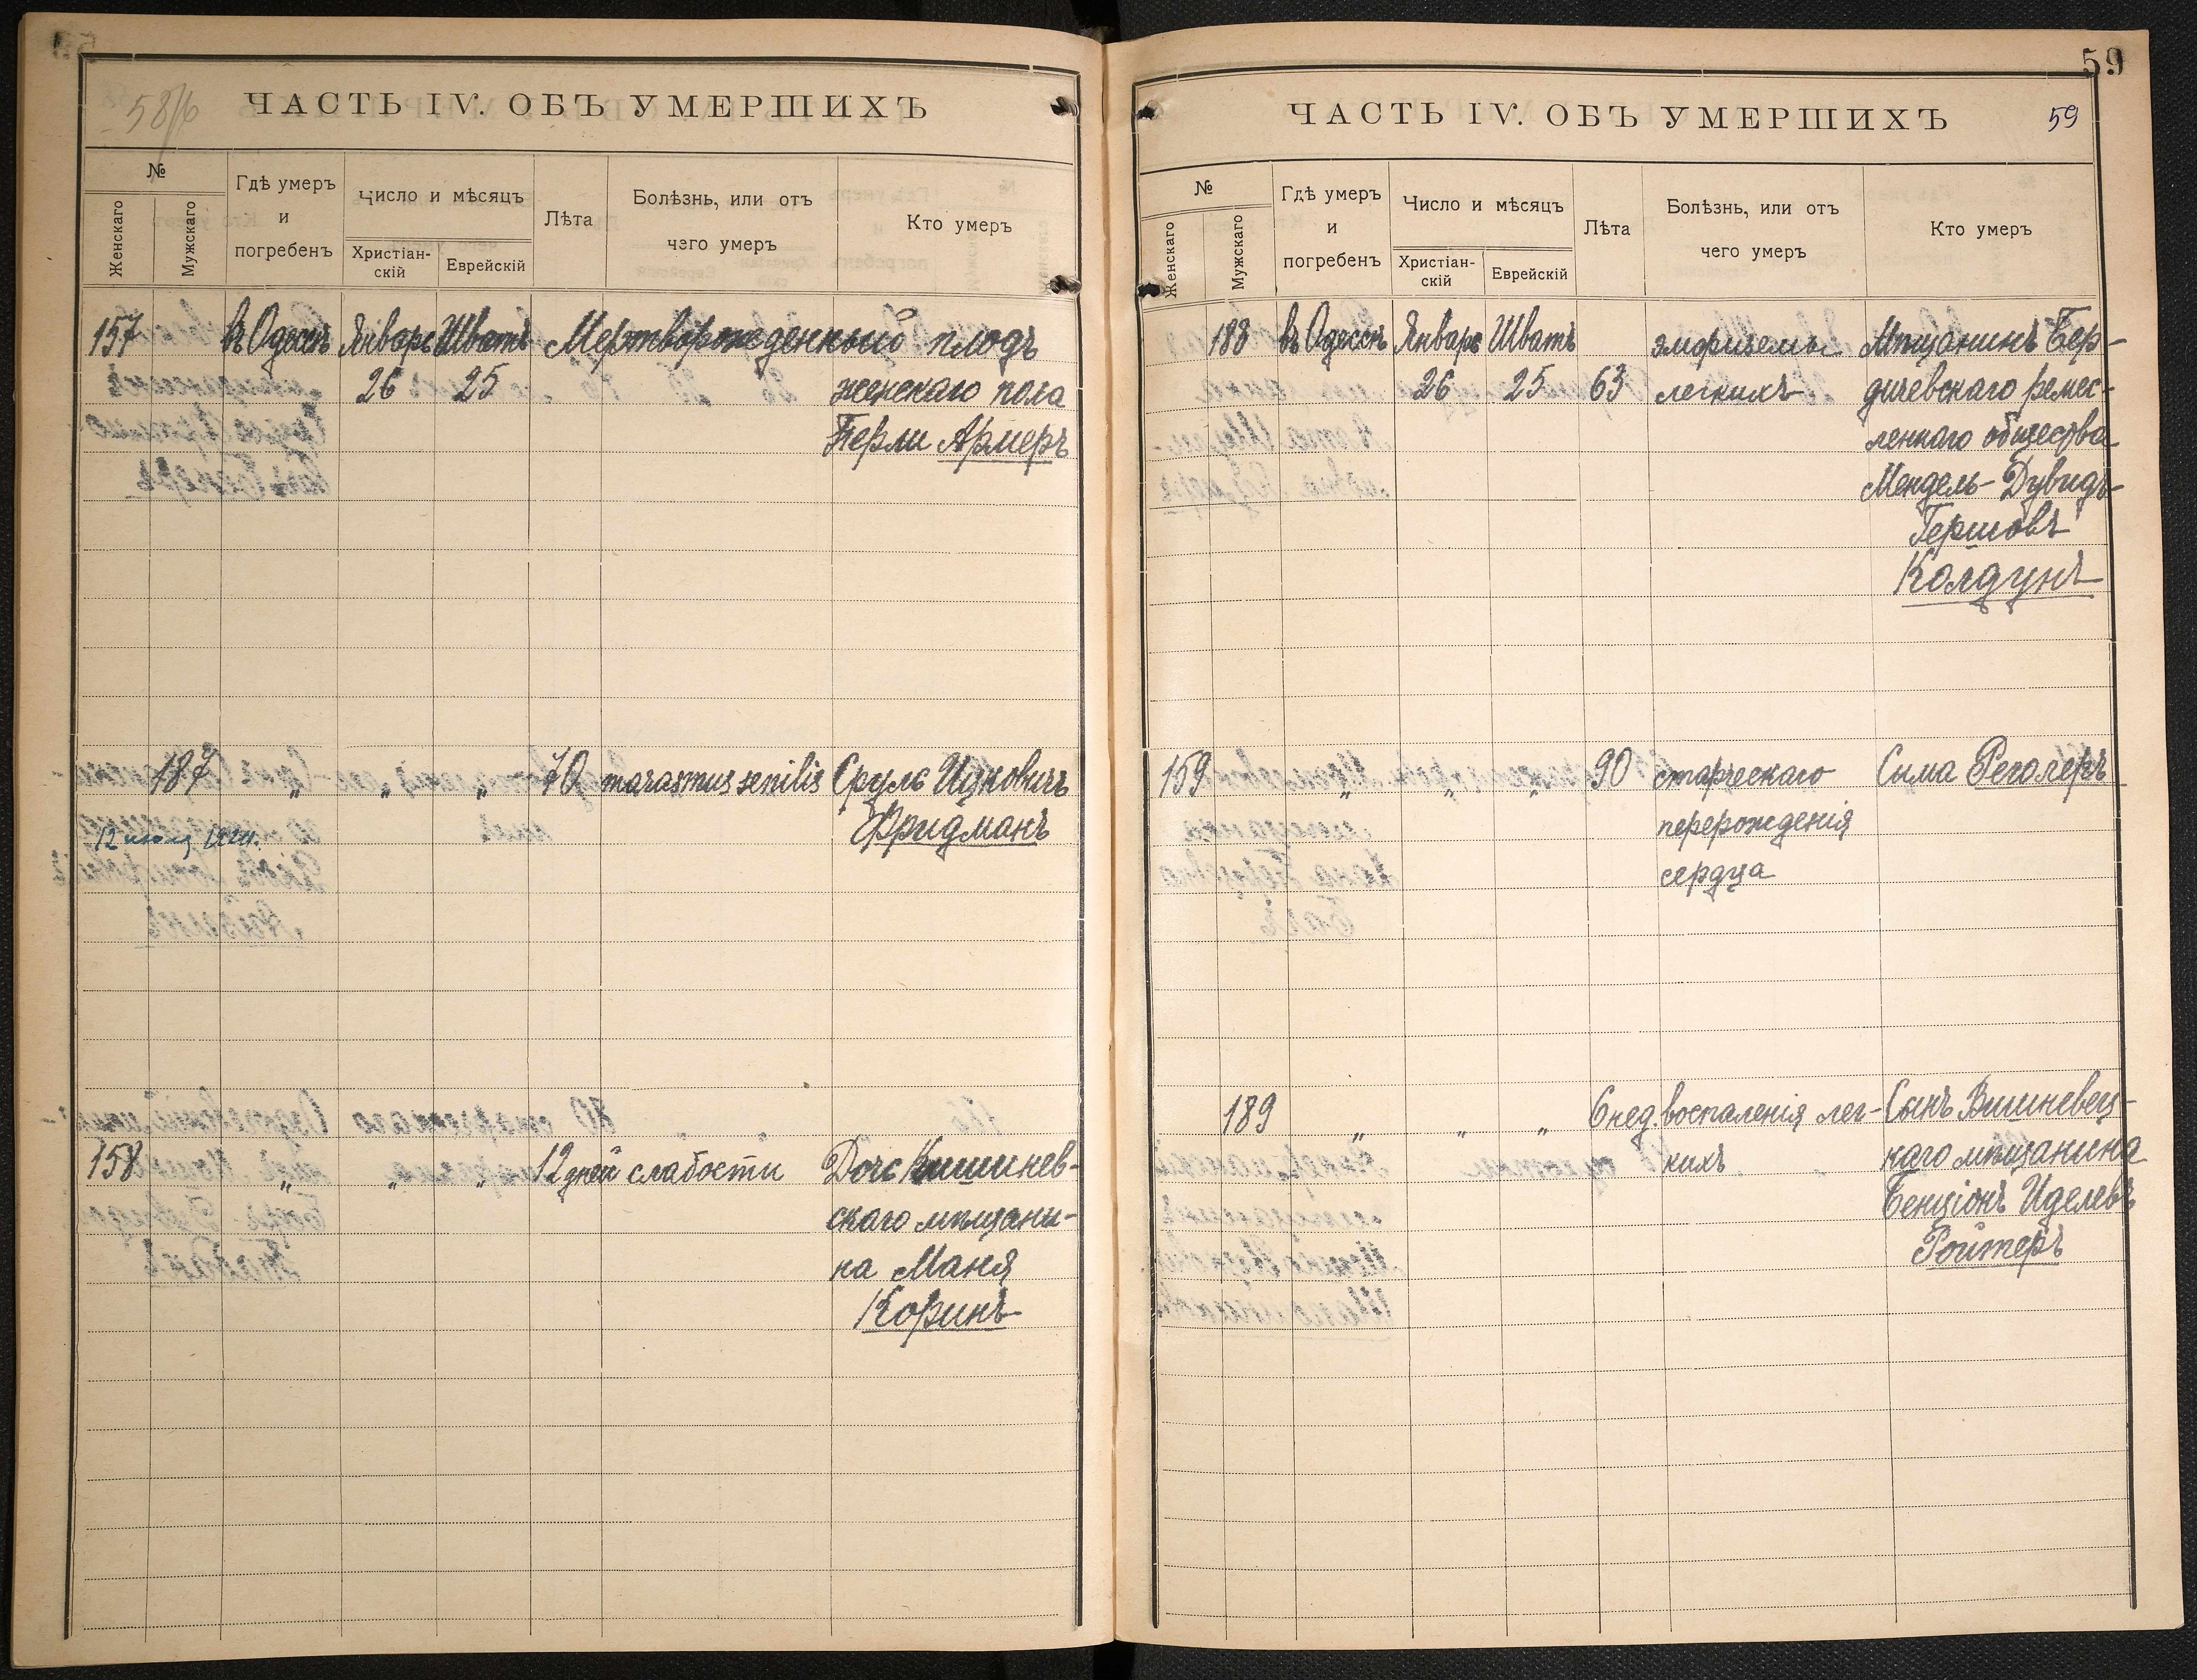 58/б
ЧАСТЬ IV. ОБЪ УМЕРШИХЪ
№
Женскаго
Мужскаго
Гдѣ умеръ
и
погребенъ
Число и мѣсяцъ
Христіан-
скій
Еврейскій
Лѣта
Болѣзнь, или отъ
чего умеръ
Кто умеръ
157 въ Одессѣ Январь Шватъ Мертворожденный плодъ
26 25 женскаго пола
Перли Армеръ
187 „ „ „ 70 marasmus senilis Сруль Ицковичъ
Фридманъ
158 „ „ „ 12 дней слабости Дочь Кишинев-
скаго мѣщани-
на Маня
Коринъ
59
ЧАСТЬ IV. ОБЪ УМЕРШИХЪ
59
№
Женскаго
Мужскаго
Гдѣ умеръ
и
погребенъ
Число и мѣсяцъ
Христіан-
скій
Еврейскій
Лѣта
Болѣзнь, или отъ
чего умеръ
Кто умеръ
188 въ Одессѣ Январь Шватъ эмфиземы Мѣщанинъ Бер-
26 25 63 легкихъ дичевскаго ремес-
леннаго общества
Мендель-Дувидъ
Гершовъ
Колдунъ
159 „ „ „ 90 старческаго Сима Реголеръ
перерожденія
сердца
189 „ „ „ 6 нед. воспаленія лег- Сынъ Вишневец-
кихъ каго мѣщанина
Бенціонъ Иделевъ
Ройтеръ